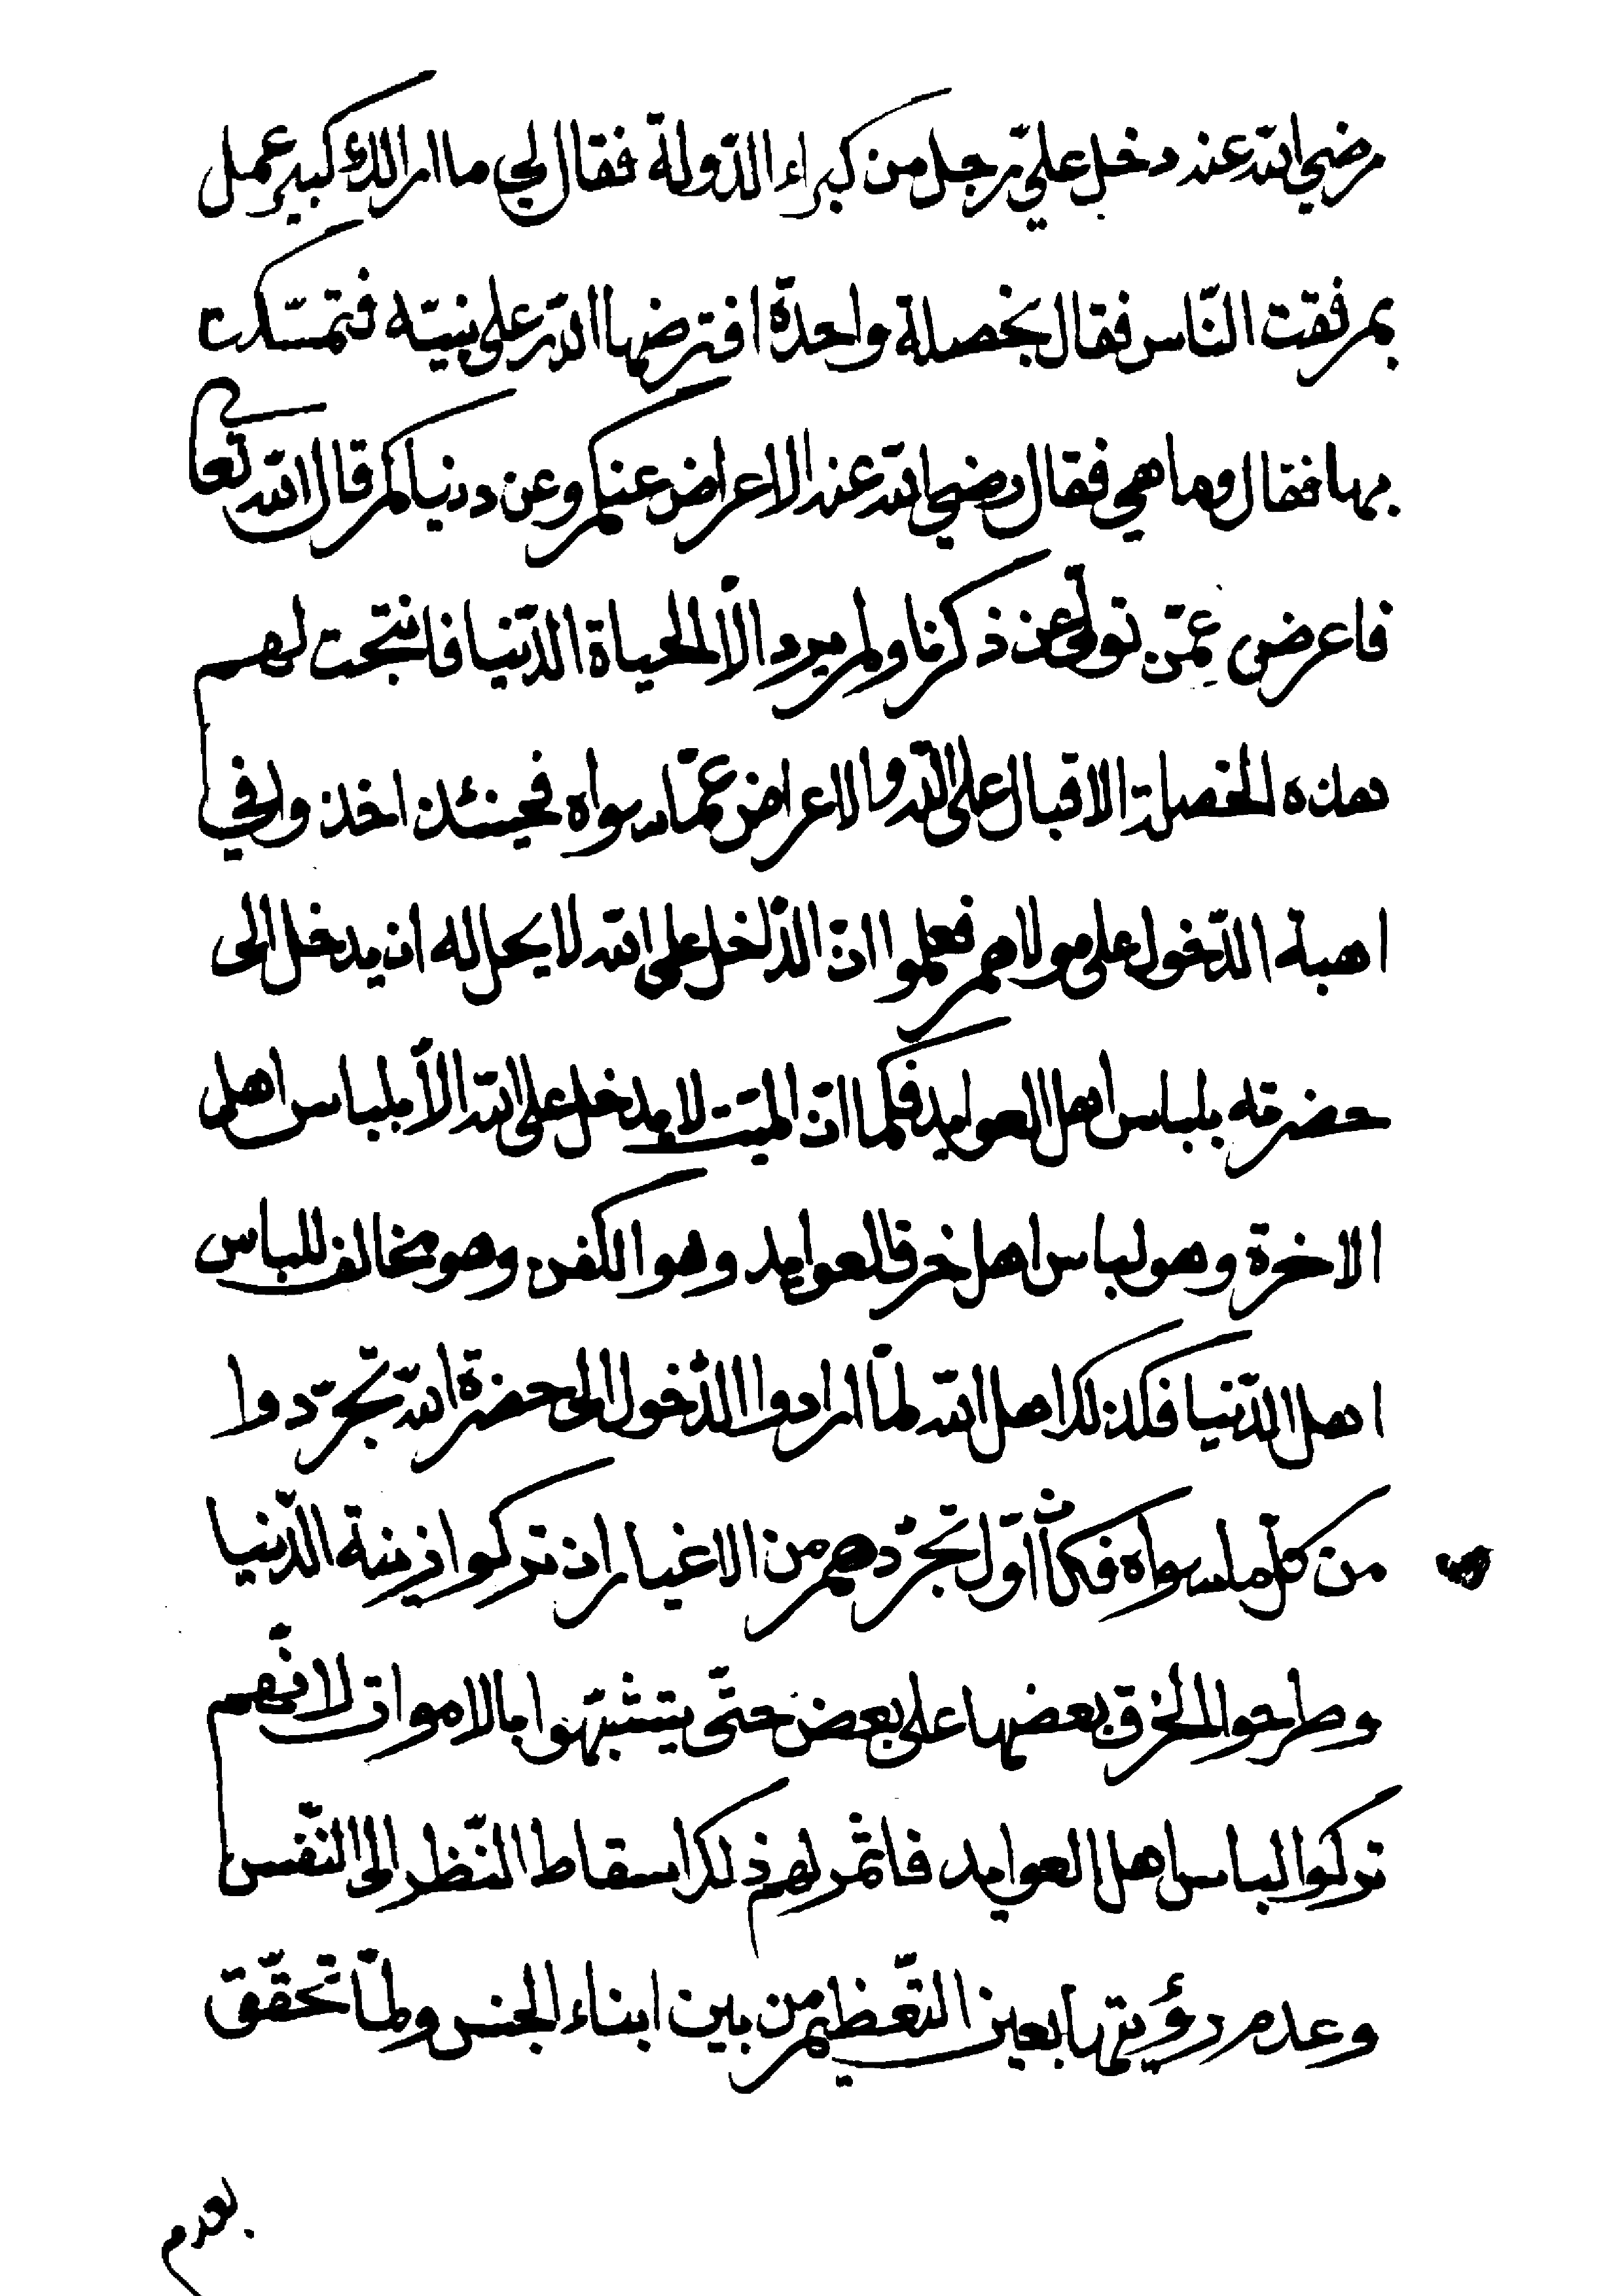 رضي الله عنه دخل عليّ رجل من كبراء الدّولة فقال لي ما ارى لك كبير عمل
بم فقت النّاس فقال بخصلة واحدة افترضها الله على نبيّه فتمسّكت
بها فقال وما هي فقال رضي الله عنه الاعراض عنكم وعن دنياكم قال الله تعا
فاعرض عمّن تولّى عن ذكرنا ولم يرد الّا الحياة الدّنيا فانتجت لهم
هذه الخصلة الاقبال على الله والاعراض عمّا سواه فحينئذ اخذوا في
اهبة الدّخول على مولاهم فعلموا انّ الدّاخل على الله لا يحل له ان يدخل الى
حضرته بلباس اهل العوايد فكما انّ الميّت لا يدخل على الله الّا بلباس اهل
الاخرة وهو لباس اهل خرق العوايد وهو الكفن وهو مخالف للباس
اهل الدّنيا فكذلك اهل الله لمّا ارادوا الدّخول الى حضرة الله تجرّدوا
من كلّ ما سواه فكان اوّل تجرّدهم من الاغيار ان تركوا زينة الدّنيا
وطرحوا الخرق بعضها على بعض حتّى يتشبّهوا بالاموات لانّهم
تركوا لباس اهل العوايد فاثمر لهم ذلك اسقاط النّظر الى النّفس
وعدم رؤيتها بعين التّعظيم من بين ابناء الجنس ولمّا تحقّق
بعدم